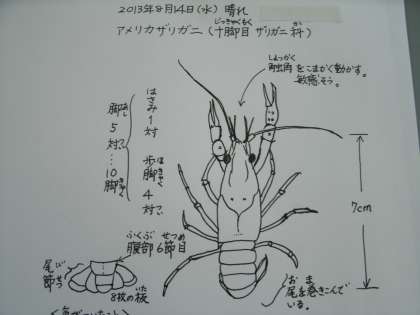 2013年8月14日(水) 晴れ
じっきゃくもく
アメリカザリガニ(十脚目 ザリガニ科)
か
しょっかく
触角をこまかく動かす。
敏感そう。
はさみ1対
歩脚4対
ほきゃく
つい
脚5対…10脚
あし
つい
きゃく
7cm
ふくぶ せつめ
腹部6節目
尾節
び
せつ
いた
8枚の板
お ま
尾を巻きこんで
いる。